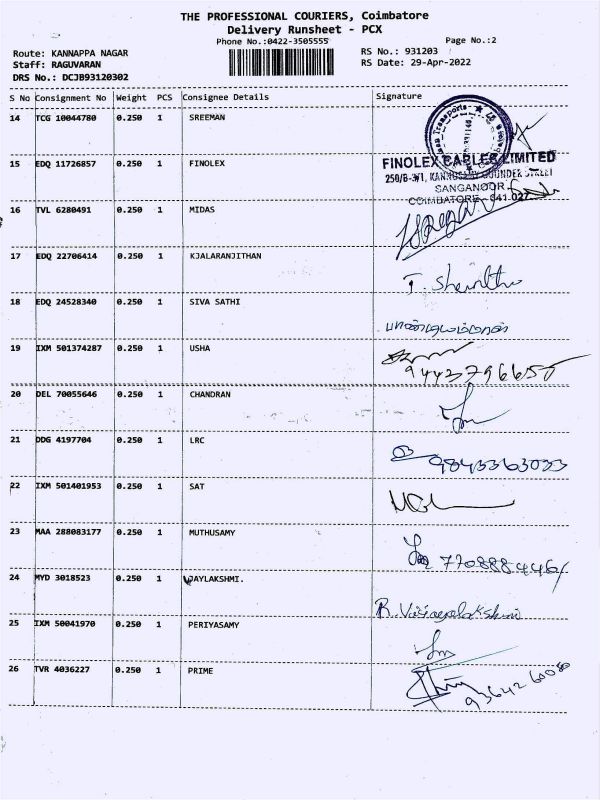 THE PROFESSIONAL COURIERS, Coimbatore
Delivery Runsheet - PCX
Phone No.:0422-3505555 Page No.:2
Route: KANNAPPA NAGAR RS No.: 931203
Staff: RAGUVARAN RS Date: 29-Apr-2022
DRS No.: DCJB93120302
S No Consignment No Weight PCS Consignee Details Signature
14 TCG 10044780 0.250 1 SREEMAN
15 EDQ 11726857 0.250 1 FINOLEX
FINOLEX CABLES LIMITED
SANGANOOR
COIMBATORE - 641 027
16 TVL 6280491 0.250 1 MIDAS
17 EDQ 22706414 0.250 1 KJALARANJITHAN
18 EDQ 24528340 0.250 1 SIVA SATHI
19 IXM 501374287 0.250 1 USHA
20 DEL 70055646 0.250 1 CHANDRAN
21 DDG 4197704 0.250 1 LRC
22 IXM 501401953 0.250 1 SAT
23 MAA 288083177 0.250 1 MUTHUSAMY
24 MYD 3018523 0.250 1 JAYLAKSHMI.
R. Vijayalakshmi
25 IXM 50041970 0.250 1 PERIYASAMY
26 TVR 4036227 0.250 1 PRIME